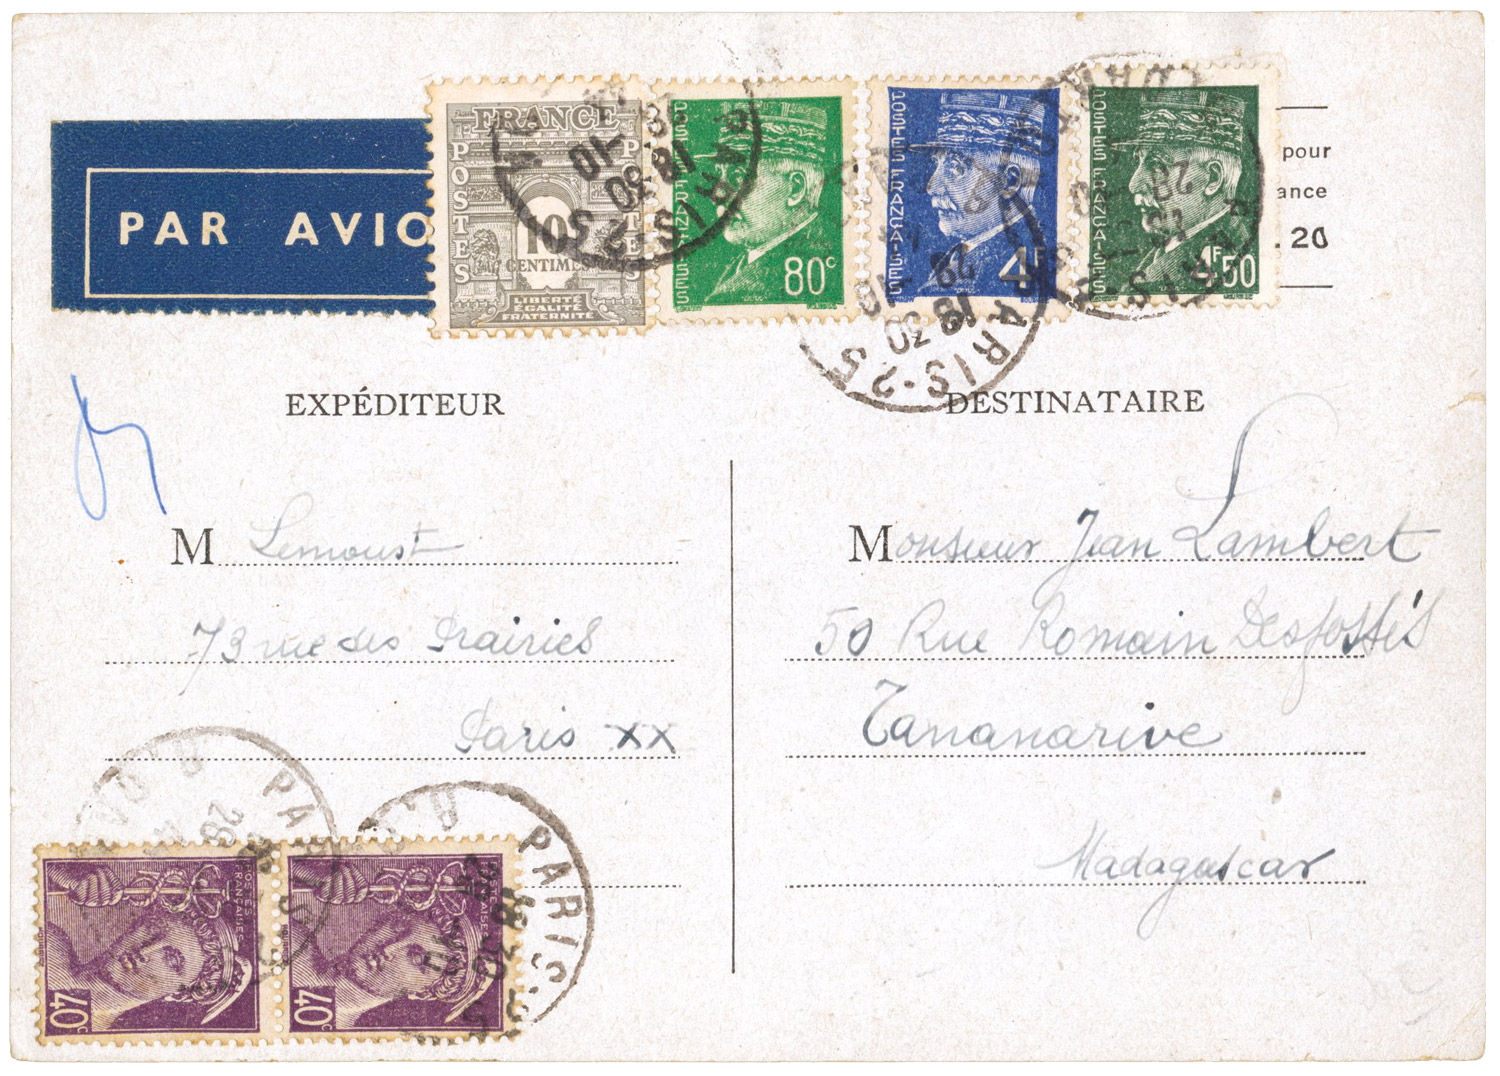 PAR AVIO
FRANCE
POSTES
10
CENTIMES
LIBERTÉ
ÉGALITÉ
FRATERNITÉ
POSTES FRANÇAISES
80c
POSTES FRANÇAISES
4F
POSTES FRANÇAISES
4F50
pour
ance
.20
PARIS-25
18 30
PARIS-25
18 30
28
PARIS
EXPÉDITEUR
DESTINATAIRE
M Lemoust
Monsieur Jean Lambert
73 rue des Prairies
50 Rue Romain Desfossés
Paris XX
Tananarive
Madagascar
PARIS
28
PARIS-25
POSTES
FRANÇAISES
40c
40c